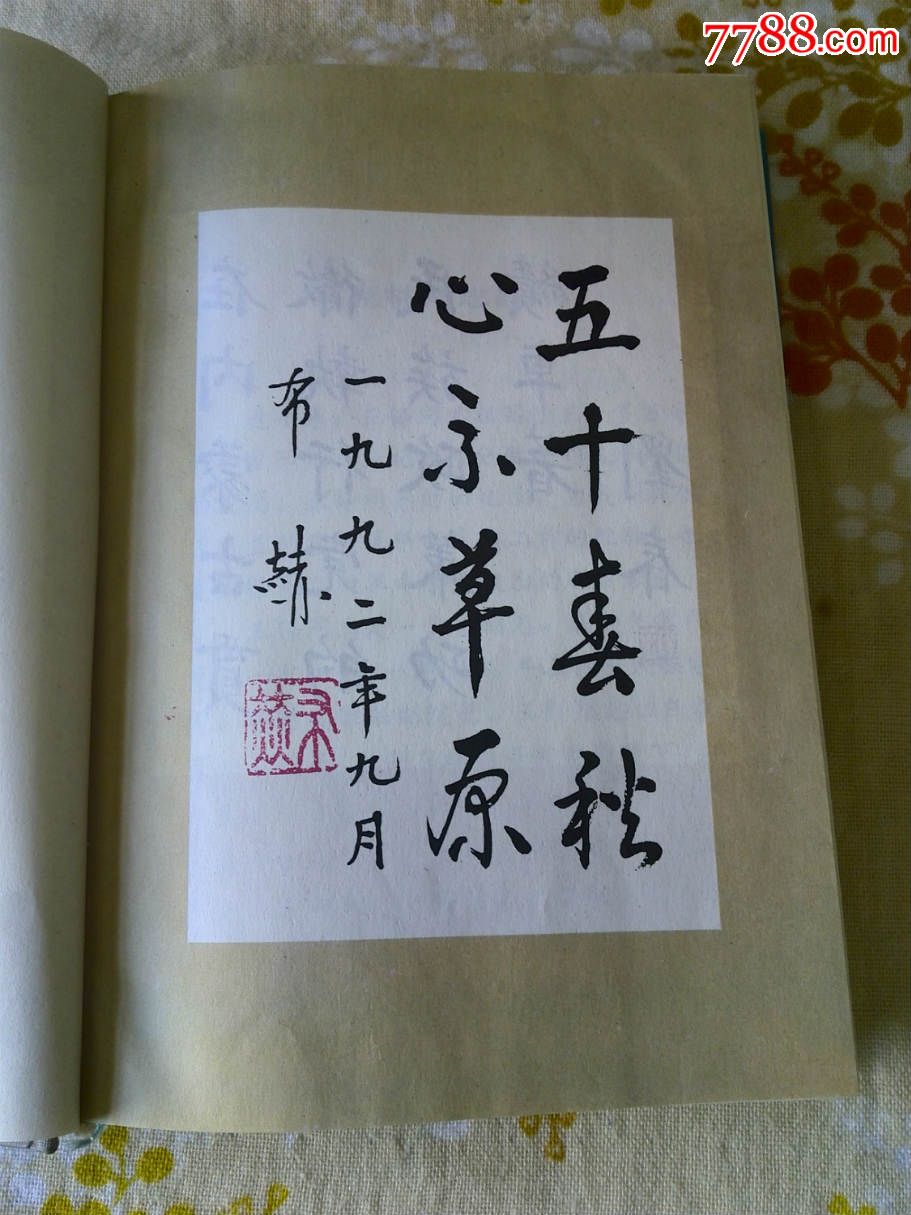 7788.com
五十春秋
心系草原
一九九二年九月
布赫
布赫